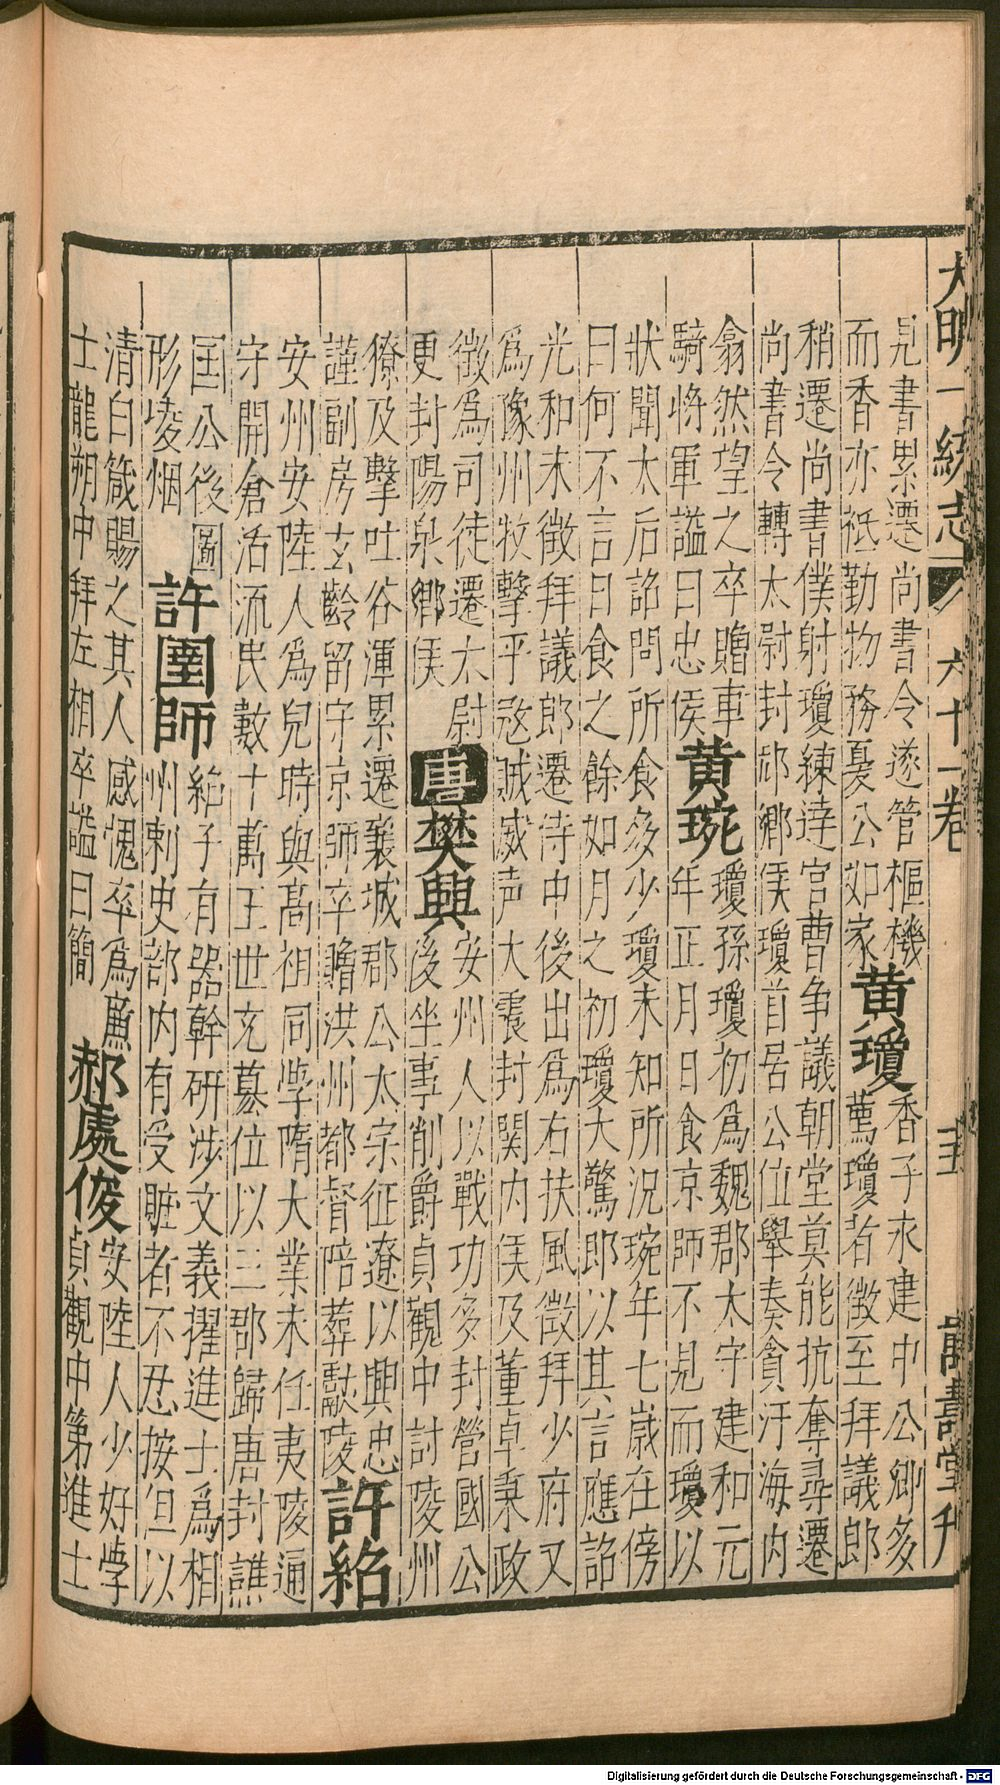 大明一統志 六十一卷 五 萬壽堂刋
見書累遷尚書令遂管樞機
而香亦祗勤物務憂公如家
黄瓊
香子永建中公卿多
薦瓊者徵至拜議郎
稍遷尚書僕射瓊練達官曹争議朝堂莫能抗奪尋遷
尚書令轉太尉封邟鄉侯瓊首居公位舉奏貪汙海内
翕然望之卒贈車
騎将軍謚曰忠侯
黄琬
瓊孫瓊初為魏郡太守建和元
年正月日食京師不見而瓊以
狀聞太后詔問所食多少瓊未知所況琬年七歲在傍
曰何不言日食之餘如月之初瓊大驚即以其言應詔
光和末徵拜議郎遷侍中後出為右扶風徵拜少府又
為豫州牧擊平㓂賊威声大震封関内侯及董卓秉政
徵為司徒遷太尉
更封陽泉鄉侯
唐樊興
安州人以戰功多封營國公
後坐事削爵貞觀中討陵州
獠及擊吐谷渾累遷襄城郡公太宗征遼以興忠
謹副房玄齡留守京師卒贈洪州都督陪葬獻陵
許紹
安州安陸人為兒時與高祖同斈隋大業末任夷陵通
守開倉活流民數十萬王世充墓位以三郡歸唐封譙
国公後圖
形凌烟
許圉師
紹子有器幹研涉文義擢進士為相
州刺史部内有受賍者不忍按但以
清白箴賜之其人感愧卒為亷
士龍朔中拜左相卒謚曰簡
郝處俊
安陸人少好斈
貞觀中第進士
Digitalisierung gefördert durch die Deutsche Forschungsgemeinschaft - DFG